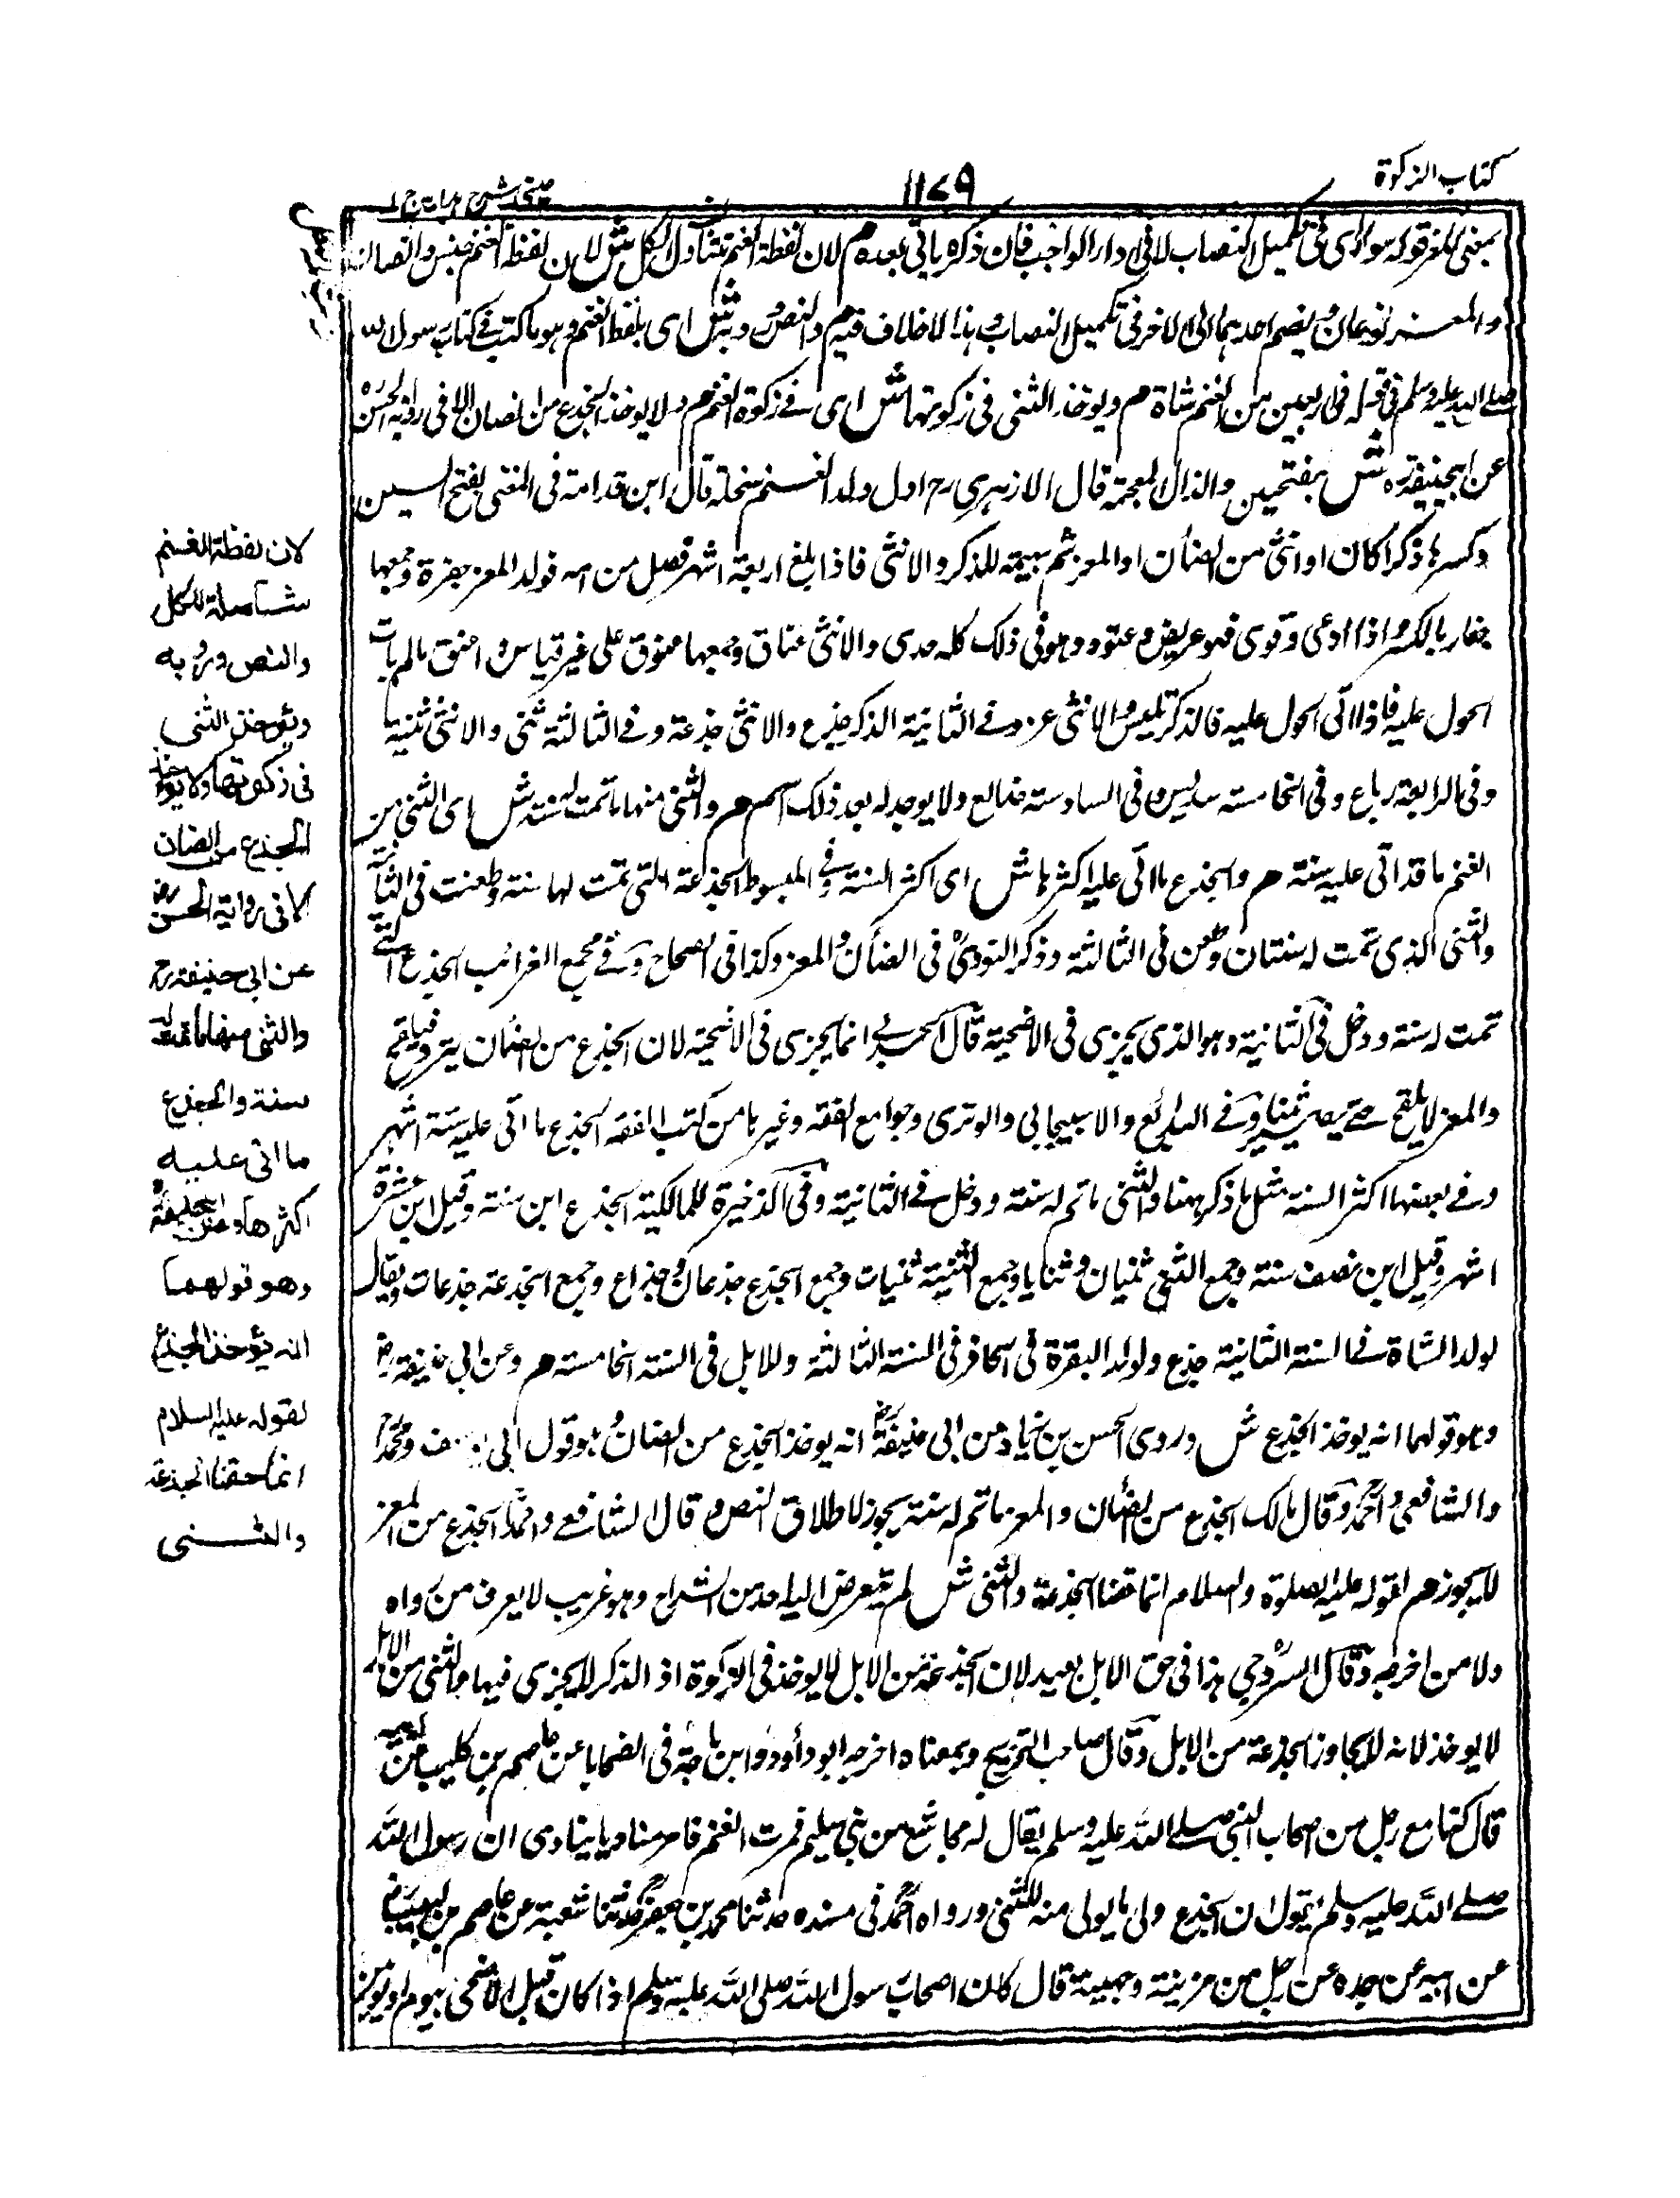 كتاب الزكوة
١١٧٩
عينى شرح هداية ج ١
بمعنى المعز قوله سواء اى فى تكميل النصاب لا فى اداء الواجب فان ذكره ياتى بعده م لان لفظة الغنم تتناول الكل ش لان لفظة الغنم جنس والضان
والمعز نوعان فيضم احدهما الى الاخر فى تكميل النصاب وهذا لا خلاف فيه م والنص ورد به ش اى بلفظ الغنم وهو ما كتب فى كتاب رسول الله
صلى الله عليه وسلم فى قوله فى اربعين من الغنم شاة م ويوخذ الثنى فى زكوتها ش اى فى زكوة الغنم م ولا يوخذ الجذع من الضان الا فى رواية الحسن
عن ابى حنيفة ره ش بفتحتين والذال المعجمة قال الازهرى رح اول ولد الغنم سخلة قال ابن قدامة فى المغنى بفتح السين
وكسرها ذكرا كان او انثى من الضأن او المعز ثم بهيمة للذكر والانثى فاذا بلغ اربعة اشهر فصل من امه فولد المعز جفرة وجمعها
جفار بالكسر واذا ادعى وقوى فهو عريض وعتود وهو فى ذلك كله جدى والانثى عناق وجمعها عنوق على غير قياس و اعنق ما لم يات
الحول عليه فاذا اتى الحول عليه فالذكر تيس والانثى عنز وفى الثانية الذكر جذع والانثى جذعة وفى الثالثة ثنى والانثى ثنية
وفى الرابعة رباع وفى الخامسة سديس وفى السادسة ضالع ولا يوجد له بعد ذلك اسم م والثنى منها ما تمت له سنة ش اى الثنى من
الغنم ما قد اتى عليه سنة م والجذع ما اتى عليه اكثرها ش اى اكثر السنة وفى المبسوط الجذعة التى تمت لها سنة وطعنت فى الثانية
والثنى الذى تمت له سنتان وطعن فى الثالثة وذكر النووى فى الضأن والمعز وكذا فى الصحاح وفى مجمع الغرائب الجذع التى
تمت له سنة ودخل فى الثانية وهو الذى يجزى فى الاضحية قال الحربى انما يجزى فى الاضحية لان الجذع من الضأن ينزو فيلقح
والمعز لا يلقح حتى يصير ثنيا وفى البدائع والاسبيجابى والوترى وجوامع الفقه وغيرها من كتب الفقه الجذع ما اتى عليه ستة اشهر
وفى بعضها اكثر السنة مثل ما ذكر ههنا والثنى ما تم له سنة ودخل فى الثانية وفى الذخيرة للمالكية الجذع ابن سنة وقيل ابن عشرة
اشهر وقيل ابن نصف سنة وجمع الثنى ثنيان وثنايا وجمع الثنية ثنيات وجمع الجذع جذعان وجذاع وجمع الجذعة جذعات ويقال
لولد الشاة فى السنة الثانية جذع ولولد البقرة فى الحافر فى السنة الثالثة وللابل فى السنة الخامسة م وعن ابى حنيفة رض
وهو قولهما انه يوخذ الجذع ش وروى الحسن بن زياد عن ابى حنيفة انه يوخذ الجذع من الضان وهو قول ابى يوسف ومحمد
والشافعى واحمد وقال مالك الجذع من الضأن والمعز ما تم له سنة يجوز لاطلاق النص وقال الشافعى واحمد الجذع من المعز
لا يجوز م لقوله عليه الصلوة والسلام انما حقنا الجذعة والثنى ش لم يتعرض اليه احد من الشراح وهو غريب لا يعرف من رواه
ولا من اخرجه وقال السروجى هذا فى حق الابل بعيد لان الجذعة من الابل لا يوخذ فى الزكوة اذ الذكر لا يجزى فيها والثنى من الابل
لا يوخذ لانه لا يجاوز الجذعة من الابل وقال صاحب التخريج وبمعناه اخرجه ابو دأود وابن ماجة فى الضحايا عن عاصم بن كليب عن ابيه
قال كنا مع رجل من اصحاب النبى صلى الله عليه وسلم يقال له مجاشع من بنى سليم فمرت الغنم فامر مناديا ينادى ان رسول الله
صلى الله عليه وسلم يقول ان الجذع يوفى ما يوفى منه الثنى ورواه احمد فى مسنده حدثنا محمد بن جعفر حدثنا شعبة عن عاصم بن كليب
عن ابيه عن جده عن رجل من مزينة وجهينة قال كان اصحاب رسول الله صلى الله عليه وسلم اذا كان قبل الاضحى بيوم او يومين
لان لفظة الغنم
شاملة للكل
والنص ورد به
ويؤخذ الثنى
فى زكوتها ولا يؤخذ
الجذع من الضان
الا فى رواية الحسن رض
عن ابى حنيفة رح
والثنى منها ما تمت له
سنة والجذع
ما اتى عليه
اكثرها وعن ابى حنيفة
وهو قولهما
انه يؤخذ الجذع
لقوله عليه السلام
انما حقنا الجذعة
والثنى